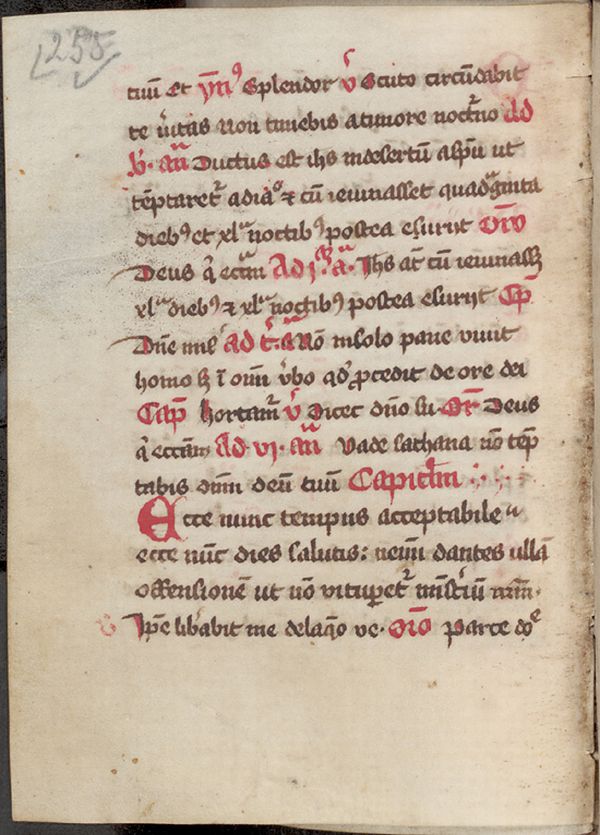 255
tuū et ym̄ꝰ Splendor v̾ Scuto circūdabit
te v̾itas non timebis a timore noct̾no Ad
b̾. an̄ Ductus est ihs in desertū a spū ut
tēptaret̾ a diaᵒ ⁊ cū ieiunasset quadᵃginta
diebꝰ et xlᵃ noctibꝰ postea esuriit Orō
Deus q̇ eccᵃm Ad jᵃᵐ aᵃ. Ihs aūt cū ieiunassꝫ
xlᵃ diebꝰ ⁊ xlᵃ noctibꝰ postea esuriit Cp̄
Dn̄e Ad t̾. an̄ Nō in solo pane vivit
homo sꝫ ī om̄i v̾bo qd̾ ꝓcedit de ore dei
Cap̄ hortam̾ v̾ Dicet dn̄o su. Or̄ Deus
q̇ eccᵃm Ad. vj. an̄ Vade sathana nō tēp
tabis dn̄m deū tuū Capitl̄m
Ecce nunc tempus acceptabile
ecce nūc dies salutis: nem̄i dantes ullā
offensionē ut nō vitup̲et̾ mīst̾iū nr̄m.
v̾ Ip̄e lib̾abit me de laq̄o ve. Orō Parce dōᵉ